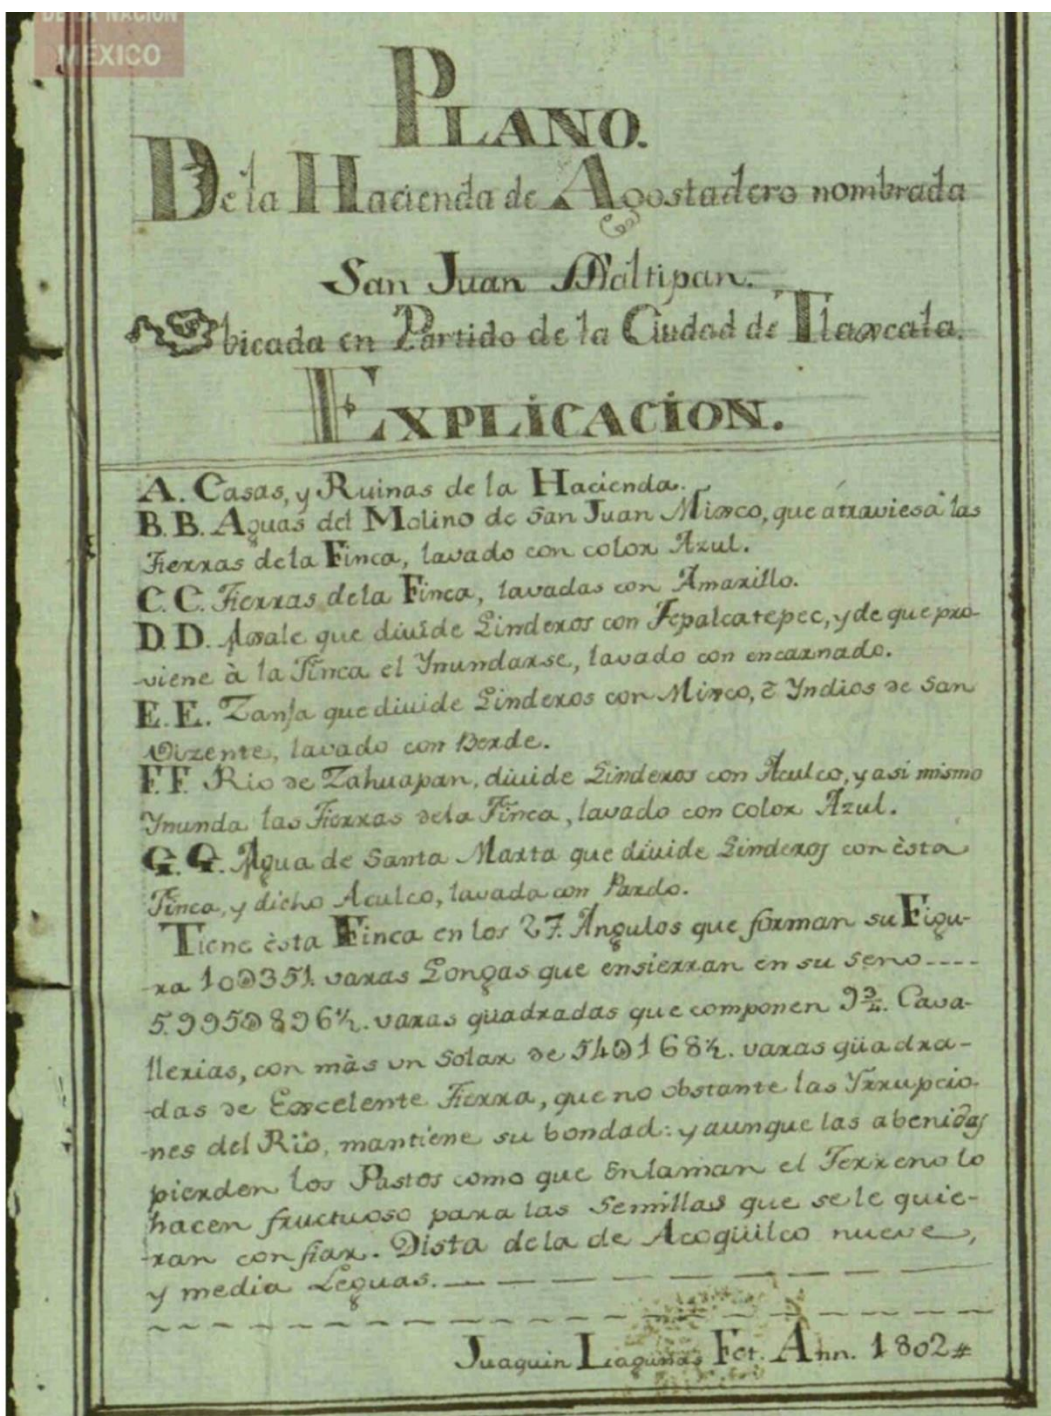 DE LA NACIÓN
MÉXICO
PLANO.
De la Hacienda de Agostadero nombrada
San Juan Maltipan.
Vbicada en Partido de la Ciudad de Tlaxcala.
EXPLICACION.
A. Casas, y Ruinas de la Hacienda.
B. B. Aguas del Molino de San Juan Mixco, que átraviesa las
Tierras de la Finca, lavado con color Azul.
C. C. Tierras de la Finca, lavadas con Amarillo.
D. D. Axale que divide Linderos con Tepalcatepec, y de que pro-
viene à la Finca el Ynundarse, lavado con encarnado.
E. E. Zanja que divide Linderos con Mixco, è Yndios de San
Vizente, lavado con Berde.
F. F. Rio de Zahuapan, divide Linderos con Aculco, y asi mismo
Ynunda las Tierras de la Finca, lavado con Color Azul.
G. G. Agua de Santa Marta que divide Linderos con èsta
Finca, y dicho Aculco, lavada con Pardo.
Tiene èsta Finca en los 27. Angulos que forman su Figu-
ra 10@351. varas Longas que ensierran en su seno----
5.995@896½. varas quadradas que componen 9¾. Cava-
llerias, con màs vn Solar de 54@168½. varas qüadra-
das de Excelente Tierra, que no obstante las Yrrupcio-
nes del Rio, mantiene su bondad: y aunque las abenidas
pierden los Pastos como que Enlaman el Terreno lo
hacen fructuoso para las Semillas que se le quie-
ran confiar. Dista de la de Acoqüilco nueve,
y media Leguas.
Juaquin Lagunas Fct. Ann. 1802#